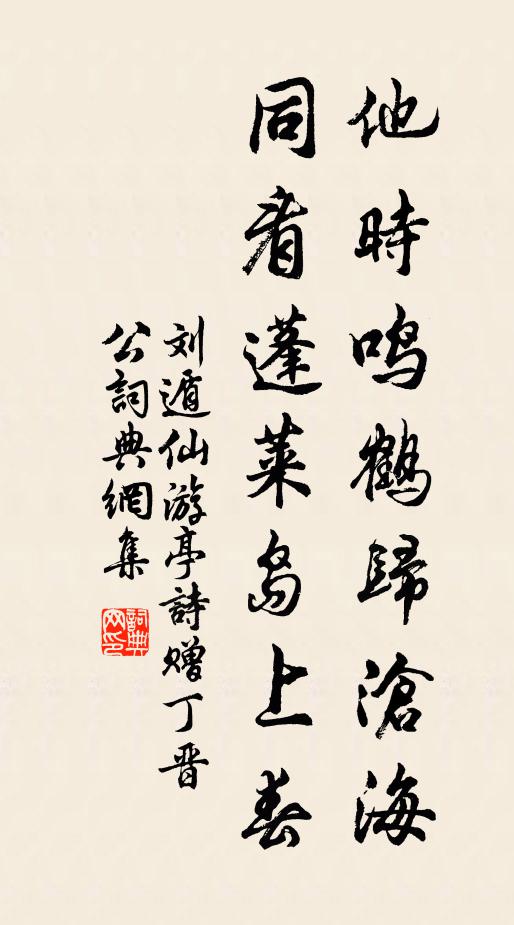 他時鳴鶴歸滄海
同看蓬萊島上春
刘遁仙游亭詩赠丁晋
公詞典網集
詞典
网印